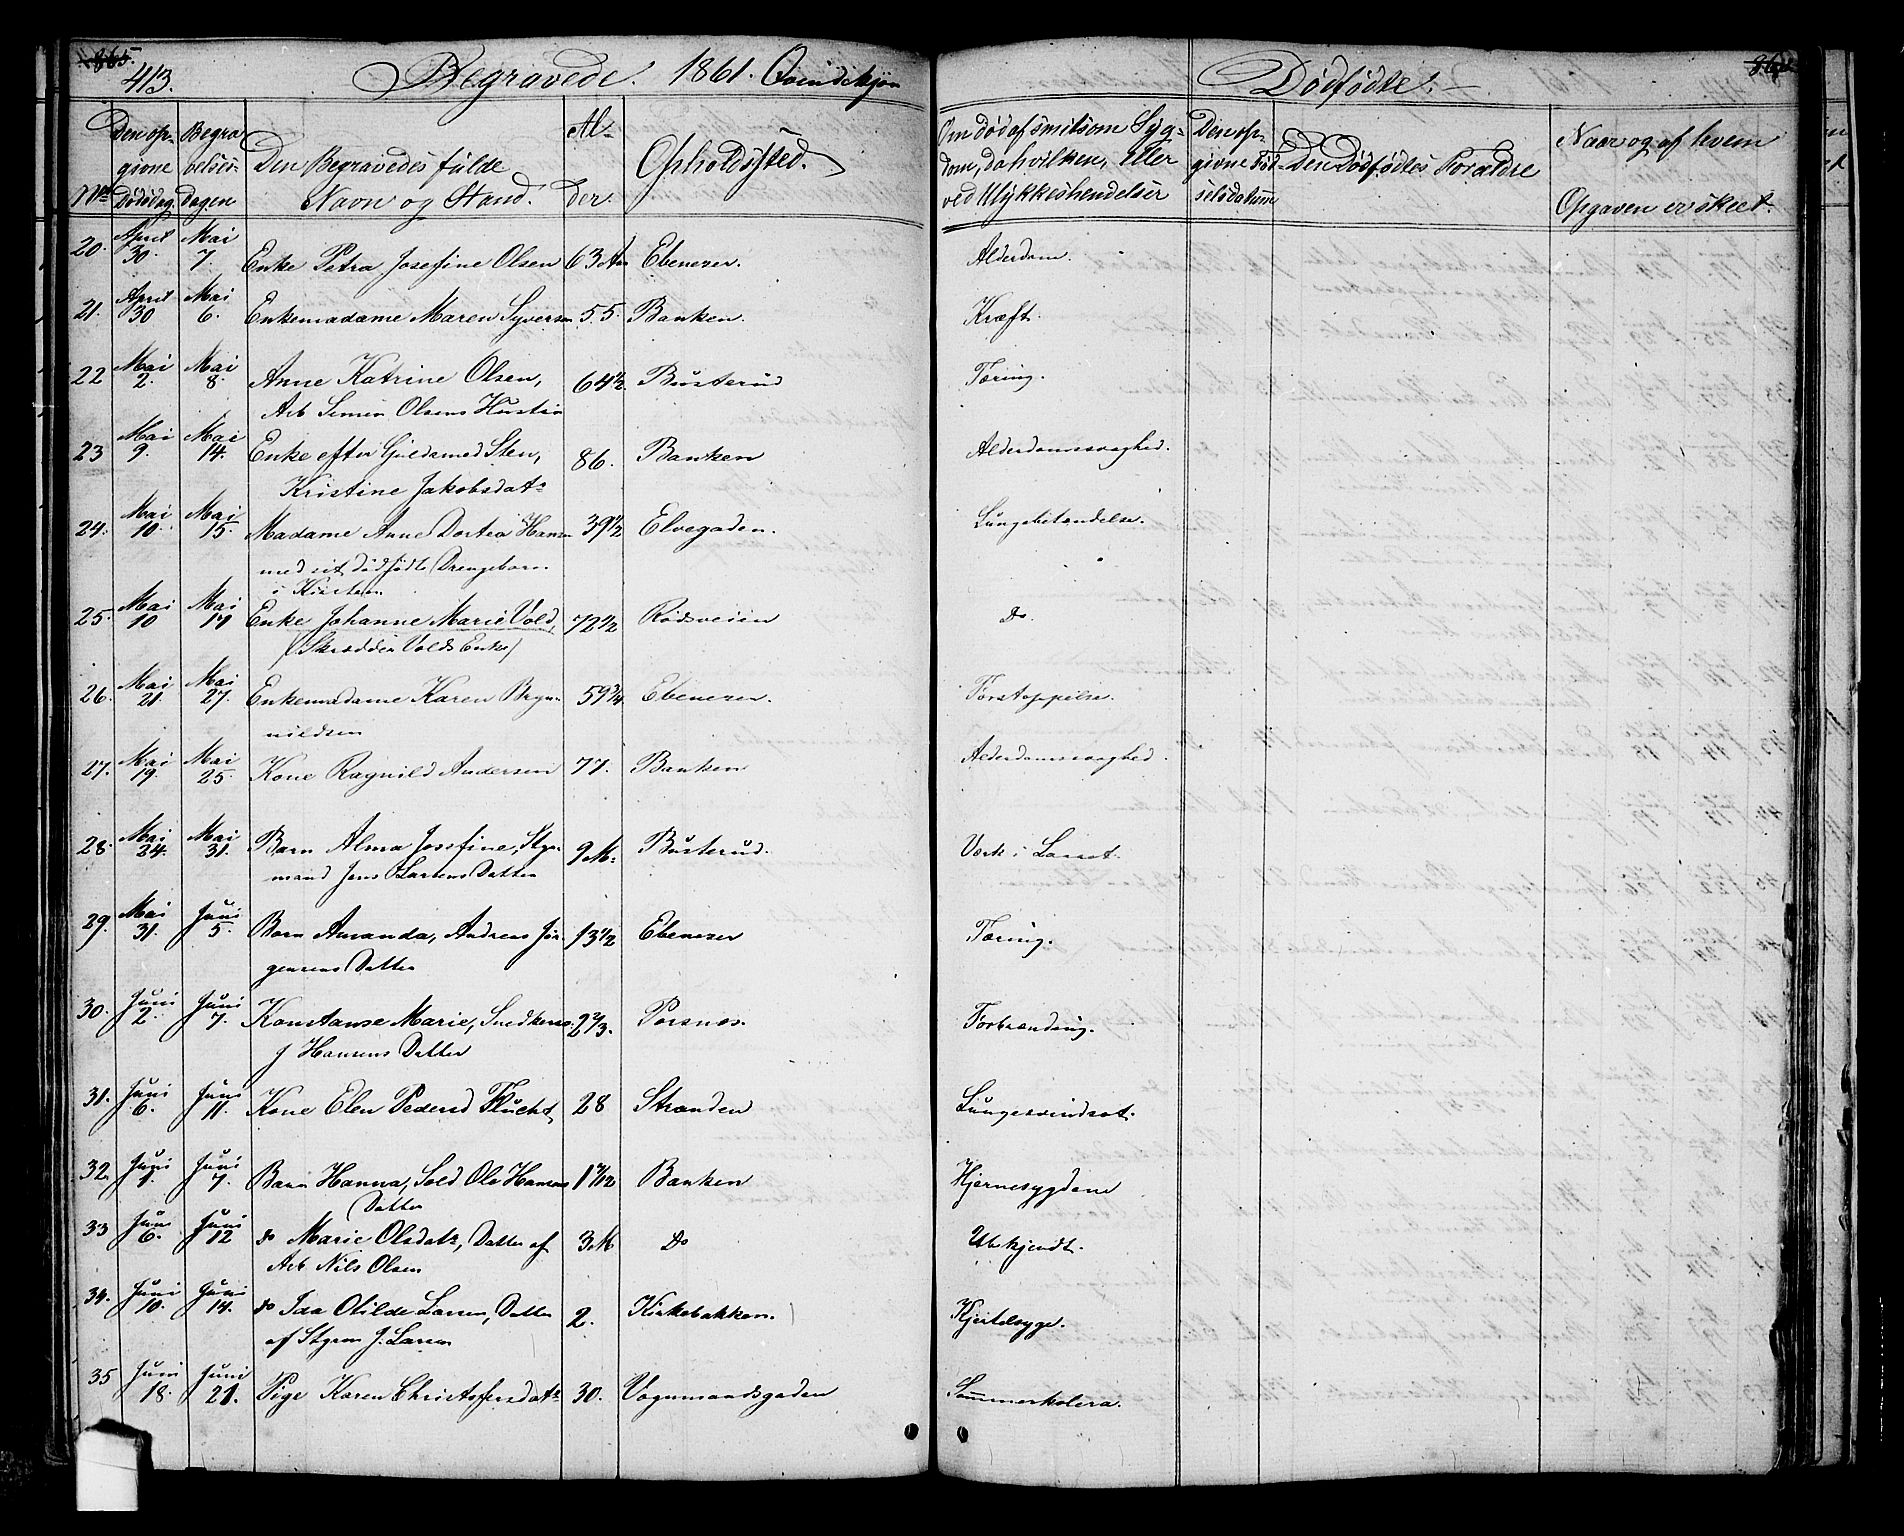 865.
413.
Begravede. 1861. Qvindekjøn
Dødfødte.
No
Den op-
givne
Dødsdag.
Begra
velses-
dagen
Den Begravedes fulde
Navn og Stand.
Al-
der.
Opholdssted.
Om død af smitsom Syg-
dom, da hvilken, Eller
ved Ulykkeshendelser
Den op-
givne Fød-
selsdatum
Den Dødfødtes Forældre
Naar og af hvem
Opgaven er skeet.
20. April 30. Mai 7. Enke Petra Josefine Olsen 63 Aar Ebenezer. Alderdom.
21. April 30 Mai 6. Enkemadame Maren Syversen 55. Banken. Kræft.
22 Mai 2. Mai 8. Anne Katrine Olsen, 64 1/2. Busterud Tæring.
Arb Simen Olsens Hustru
23 Mai 9. Mai 14. Enke efter Guldsmed Sten, 86. Banken Alderdomssvaghed.
Kristine Jakobsdatr
24. Mai 10. Mai 15. Madame Anne Dortea Hansen 39 1/2 Elvegaden. Lungebetændelse.
med sit dødfødte Drengebarn
i Kisten
25. Mai 10 Mai 17 Enke Johanne Marie Vold, 72 1/2 Rødsveien do.
(Skrædder Volds Enke)
26. Mai 21. Mai 27. Enkemadame Karen Bryn- 59 3/4 Ebenezer. Forstoppelse.
nildsen
27. Mai 19. Mai 25. Kone Ragnild Andersen 77. Banken Alderdomssvaghed.
28. Mai 24. Mai 31. Barn Alma Josefine, Styr- 9 M. Busterud. Værk i Laaret.
mand Jens Larsens Datter
29. Mai 31. Juni 5. Barn Amanda, Andreas Jør- 13 1/2 Ebenezer Tæring.
gensens Datter
30. Juni 2. Juni 7. Konstanse Marie, Snedkersv. 2 2/3. Porsnes. Forbrænding.
J Hansens Datter
31. Juni 6. Juni 11. Kone Elen Pedersd Flucht, 28 Stranden Lungesvindsot.
32. Juni 1. Juni 7. Barn Hanna, Sold Ole Hansens 1 7/12 Banken Hjernesygdom
Datter
33 Juni 6. Juni 12 do Marie Olsdatr, Datter af 3 M do Ubekjendt.
Arb Nils Olsen
34. Juni 10. Juni 14. do Ida Otilde Larsen, Datter 2. Kirkebakken. Kjertelsyge.
af Styrm J. Larsen
35 Juni 18. Juni 21. Pige Karen Christoffersdatr 30. Vognmandsgaden Sommerkolera.